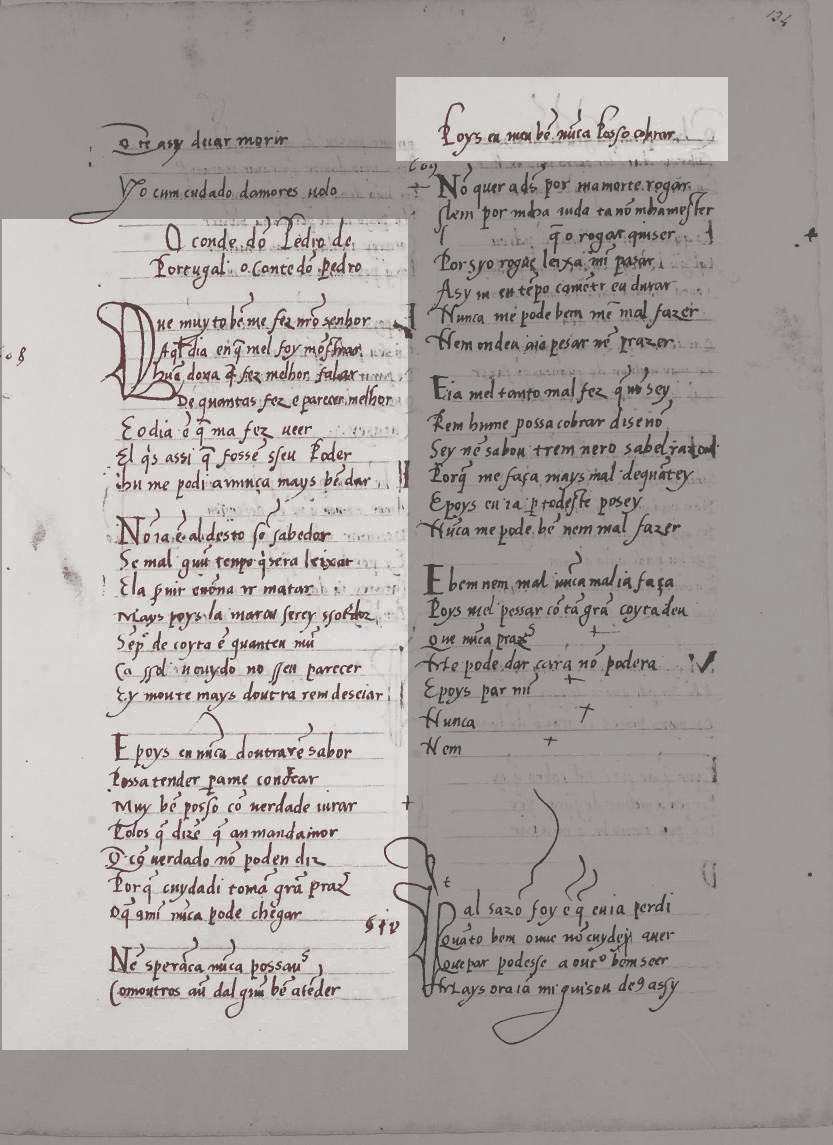 o te asy deuar morir
Yo cum cudado damores uolo
O conde dō Pedro de
Portugal o Conte dō pedro
Que muyto bē me fez nrō senhor
Aql dia en q̄ mel foy mōstrar
hua dona q̄ fez melhor falar
De quantas fez e parecer melhor
E o dia ē q̄ ma fez ueer
El q̇s assi q̄ fosse ē sseu Poder
hu me podi a nunca mays bē dar
Nō ia ē al desto sō sabedor
Se mal guū tenpo q̇sera leixar
Ela mar
Mays poys la matou serey
de coyta ē quanteu
Ca no sseu parecer
Ey moute mays doutra rem deseiar
E poys eu nūca doutra rē sabor
Possa tender pame confortar
Muy bē posso cō uerdade iurar
Polos q̄ dizē q̄ an manda
Q cō uerdado nō poden diz
Porq̄ cuydādi tomā grā praz
oq̄ ami nūca pode chēgar
Nē sperāca nūca possau
Comoutros aū dalguū bē atēder
134
Poys eu meu bē nūca Posso cobrar
609
Nō quer a ds por mamorte rogar
Nem por mha uida ca nō mha mester
q̄ o rogar quiser
Por syo rogue leixa mī pasar
Asy m en tēpo camētr eu durar
Nunca me pode bem mē mal fazer
Nem ondeu aia pesar nē prazer
E ia mel tanto mal fez q̄ nō sey
Rem hu me possa cobrar dis enō
Sey nē sabou trem nen o sabel
Porq̄ me faça mays mal dequātey
E poys eu ia p todeste posey
Nūca me pode bē nem mal fazer
E bem nem mal nūca mal ia faça
Poys mel pessar cō tā grā coyta deu
Que nūca praz
Arte pode dar cura nō podera
E poys par mī
Nunca
Nem
610
Tal sazō foy ē q̄ eu ia perdi
Quāto bem ouue nō cuydey auer
Que par podesse a outo bem seer
Mays ora iā mi guisou de9 assy